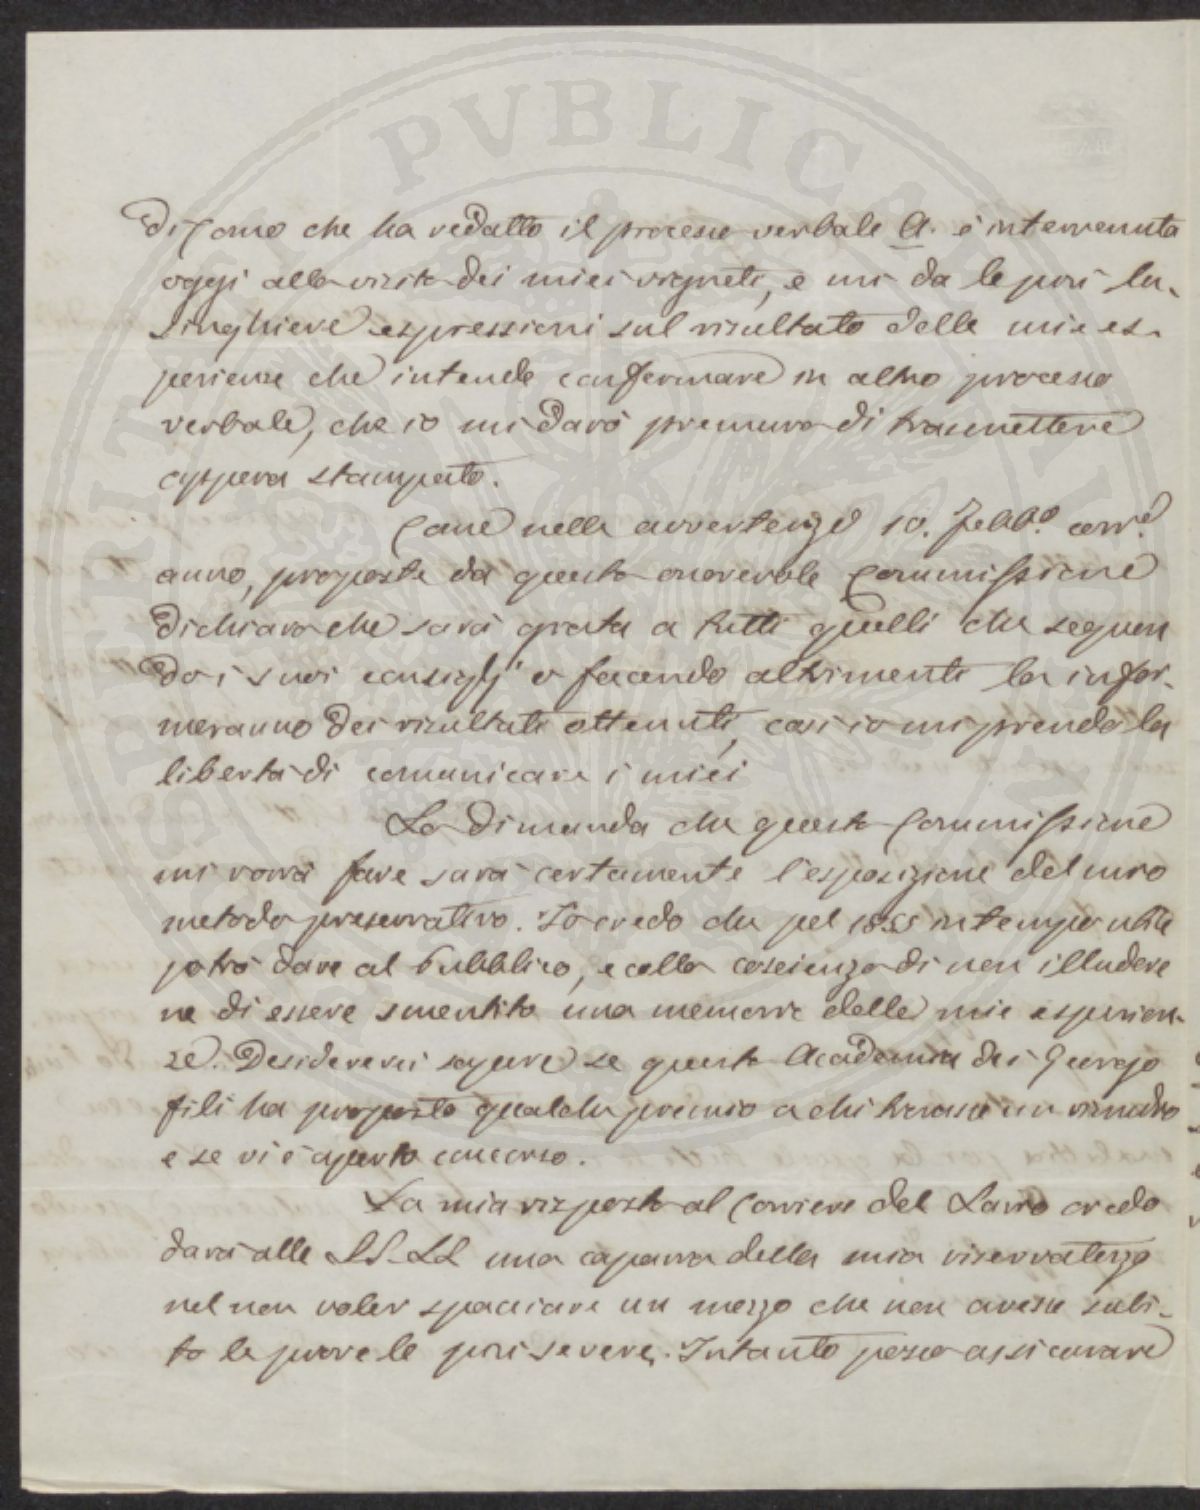 di Como che ha redatto il processo verbale A. è intervenuta
oggi alla visita dei miei vigneti, e mi da le più lu-
singhiere espressioni sul risultato delle mie es-
perienze che intende confermare in altro processo
verbale, che io mi darò premura di trasmettere
appena stampato.
Come nelle avvertenze 10. Febb.o corr.e
anno, proposte da questa onorevole Commissione
dichiara che sarà grata a tutti quelli che seguen
do i suoi consigli o facendo altrimenti la infor-
meranno dei risultati ottenuti, così io mi prendo la
libertà di comunicare i miei
La dimanda che questa Commissione
mi vorrà fare sarà certamente l'esposizione del mio
metodo preservativo. Io credo che pel 1855 in tempo utile
potrò dare al pubblico, e colla coscienza di non illudere
ne di essere smentito una memoria delle mie esperien-
ze. Desidererei sapere se questa Accademia dei Georgo
fili ha proposto qualche premio a chi trovasse un rimedio
e se vi è aperto concorso.
La mia risposta al Corriere del Lario credo
darà alle SS. LL una caparra della mia riservatezza
nel non voler spacciare un mezzo che non avesse subi-
to le prove le più severe. Intanto posso assicurare
PUBLICAE